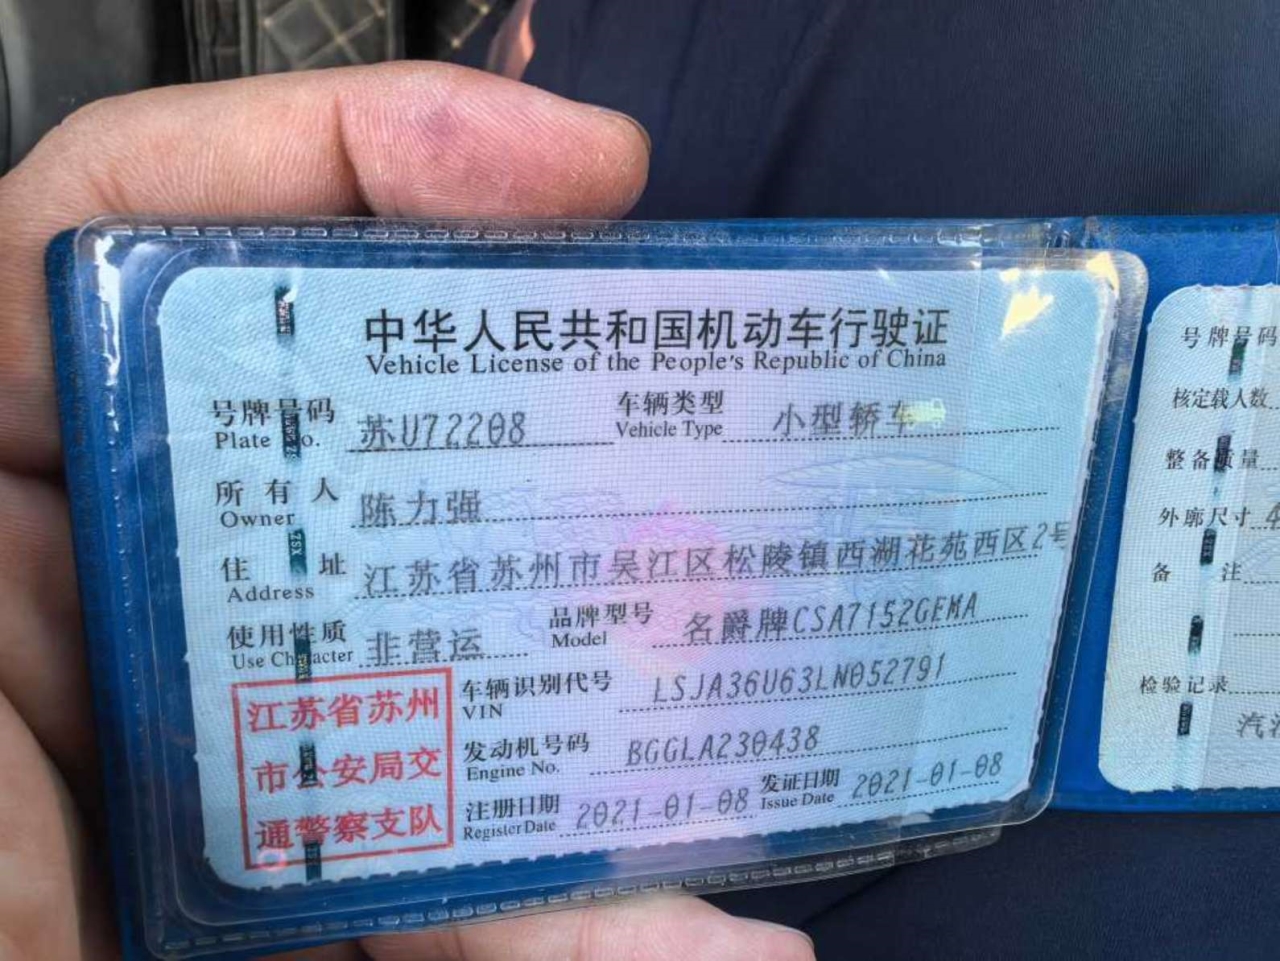 中华人民共和国机动车行驶证
Vehicle License of the People's Republic of China
号牌号码 苏U72208 车辆类型 小型轿车
Plate No. Vehicle Type
所有人 陈力强
Owner
住址 江苏省苏州市吴江区松陵镇西湖花苑西区2号
Address
使用性质 非营运 品牌型号 名爵牌CSA7152GEMA
Use Character Model
车辆识别代号 LSJA36U63LN052791
VIN
发动机号码 BGGLA230438
Engine No.
注册日期 2021-01-08 发证日期 2021-01-08
Register Date Issue Date
江苏省苏州
市公安局交
通警察支队
号牌号码
核定载人数
整备质量
外廓尺寸 4
备注
检验记录